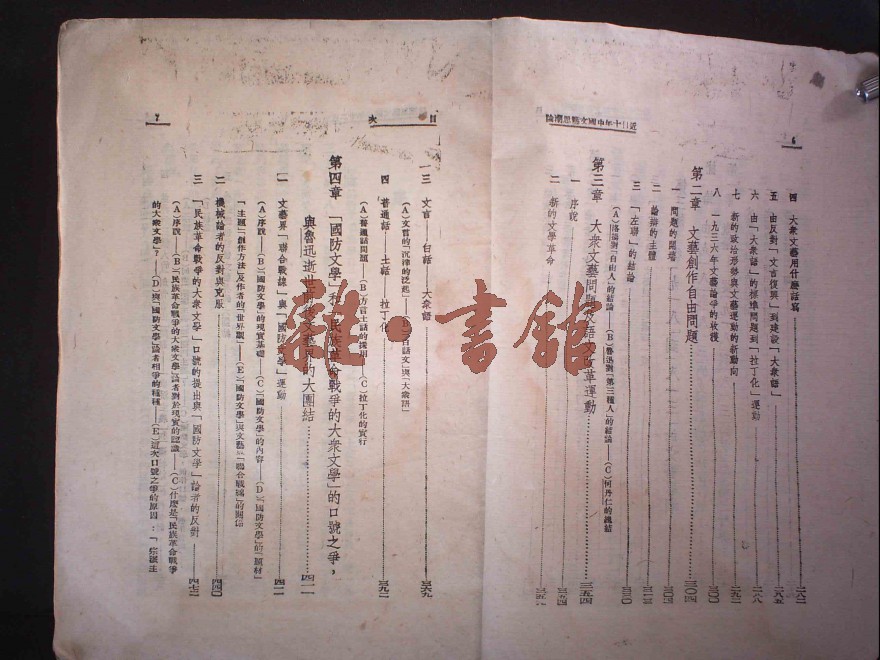 近二十年中國文藝思潮論
6
四　大衆文藝用什麽話寫
五　由反對「文言復興」到建設「大衆語」
六　由「大衆語」的標準問題到「拉丁化」運動
七　新的政治形勢與文藝運動的新動向
八　一九三六年文藝論爭的收穫
第二章　文藝創作自由問題 三〇四
一　問題的開端 三〇四
二　論辯的主體
三　「左聯」的結論
（A）洛揚對「自由人」的結論——（B）魯迅對「第三種人」的結論——（C）何丹仁的總結
第三章　大衆文藝問題及語文改革運動 三五四
一　序說 三五四
二　新的文學革命
目次
7
三　文言——白話——大衆語 三六九
（A）文言的「沉滓的泛起」——（B）「白話文」與「大衆語」
四　普通話——土話——拉丁化 三九二
（A）普通話問題——（B）方言土話的採用——（C）拉丁化的實行
第四章　「國防文學」和「民族革命戰爭的大衆文學」的口號之爭，
與魯迅逝世前後文藝界的大團結 四二一
一　文藝界「聯合戰線」與「國防文學」運動 四二一
（A）序說——（B）「國防文學」的現實基礎——（C）「國防文學」的內容——（D）「國防文學」的「題材」
「主題」「創作方法」及作者的「世界觀」——（E）「國防文學」與文藝「聯合戰線」的關係
二　機械論者的反對與克服 四四〇
三　「民族革命戰爭的大衆文學」口號的提出與「國防文學」論者的反對
（A）序說——（B）「民族革命戰爭的大衆文學」論者對於現實的認識——（C）什麽是「民族革命戰爭
的大衆文學」？——（D）與「國防文學」論者相爭的種種——（E）這次口號之爭的原因：「宗派主
雄·書館